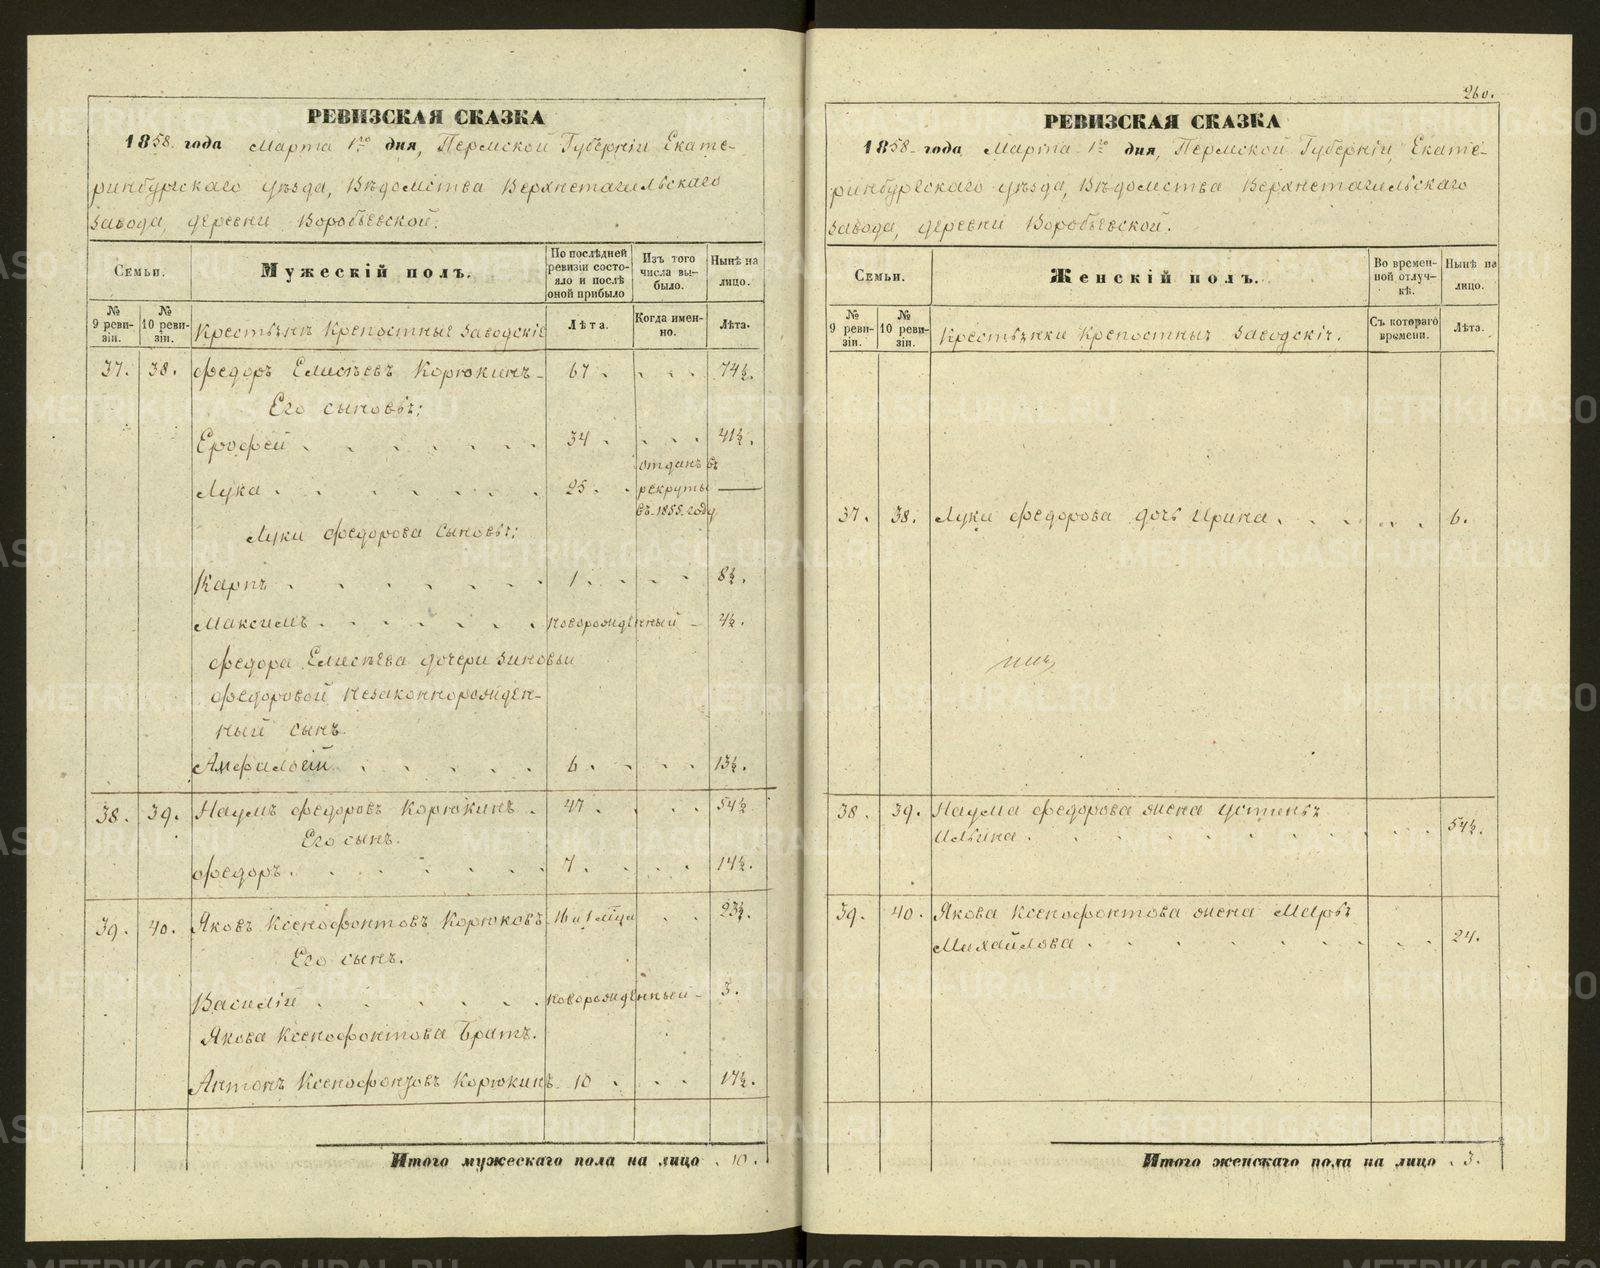 РЕВИЗСКАЯ СКАЗКА
1858 года Марта 1го дня, Пермской Губерніи Екате-
ринбургскаго уѣзда, Вѣдомства Верхнетагильскаго
Завода, деревни Воробьевской.
Семьи.
Мужескій полъ.
По послѣдней ревизіи состо-яло и послѣ оной прибыло
Изъ того числа вы-было.
Нынѣ на лицо.
№ 9 реви-зіи.
№ 10 реви-зіи.
Крестьянъ Крепостные Заводскіе
Лѣта.
Когда имен-но.
Лѣта.
37. 38. Федоръ Елисѣевъ Корюкинъ 67. 74½.
Его сыновья:
Ерофей 34. 41½.
Лука 25. отданъ въ рекруты въ 1855 году
Луки Федорова сыновья:
Карпъ 1. 8½.
Максимъ новорожденный 4½.
Федора Елисѣева дочери Зиновьи
Федоровой незаконнорожден-
ный сынъ.
Амфилогій 6. 13½.
38. 39. Наумъ Федоровъ Корюкинъ. 47. 54½.
Его сынъ.
Федоръ. 7. 14½.
39. 40. Яковъ Ксенофонтовъ Корюковъ 16 и 1 мѣца 23½.
Его сынъ.
Василій новорожденный 3.
Якова Ксенофонтова Братъ.
Антонъ Ксенофонтовъ Корюкинъ. 10. 17½.
Итого мужескаго пола на лицо 10.
260.
РЕВИЗСКАЯ СКАЗКА
1858 года Марта 1го дня, Пермской Губерніи, Екате-
ринбургскаго уѣзда, Вѣдомства Верхнетагильскаго
Завода, деревни Воробьевской.
Семьи.
Женскій полъ.
Во времен-ной отлуч-кѣ.
Нынѣ на лицо.
№ 9 реви-зіи.
№ 10 реви-зіи.
Крестьянки Крепостныхъ Заводскихъ.
Съ котораго времени.
Лѣта.
37. 38. Луки Федорова дочь Ирина. 6.
38. 39. Наума Федорова жена Устинья
Ильина. 54½.
39. 40. Якова Ксенофонтова жена Марья
Михайлова. 24.
Итого женскаго пола на лицо 3.
METRIKI.GASO-URAL.RU